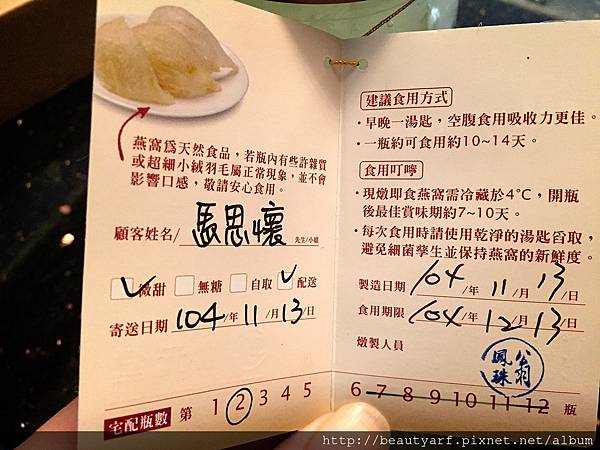 燕窩為天然食品，若瓶內有些許雜質
或超細小絨羽毛屬正常現象，並不會
影響口感，敬請安心食用。
顧客姓名/馬思懷 先生/小姐
微甜 無糖 自取 配送
寄送日期 104/年 11/月 13/日
宅配瓶數 第 1 2 3 4 5
建議食用方式
·早晚一湯匙，空腹食用吸收力更佳。
·一瓶約可食用約10~14天。
食用叮嚀
·現燉即食燕窩需冷藏於4°C，開瓶
後最佳賞味期約7~10天。
·每次食用時請使用乾淨的湯匙舀取，
避免細菌孳生並保持燕窩的新鮮度。
製造日期 104/年 11/月 13/日
食用期限 104/年 12/月 13/日
燉製人員 翁鳳珠
6 7 8 9 10 11 12 瓶
http://beautyarf.pixnet.net/album